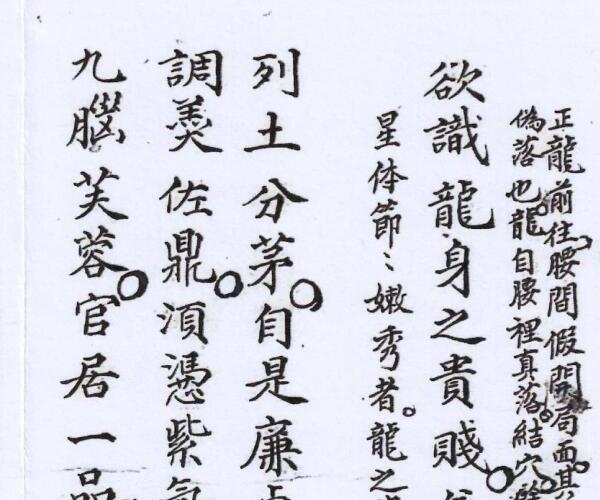 正龍前往腰間假開局面。其
偽落也。龍自腰裡真落。結穴
欲識龍身之貴賤。
星体節〻嫩秀者。龍之
列土分茅。自是廉
調羹佐鼎。湏憑紫氣
九腦芙蓉。官居一品